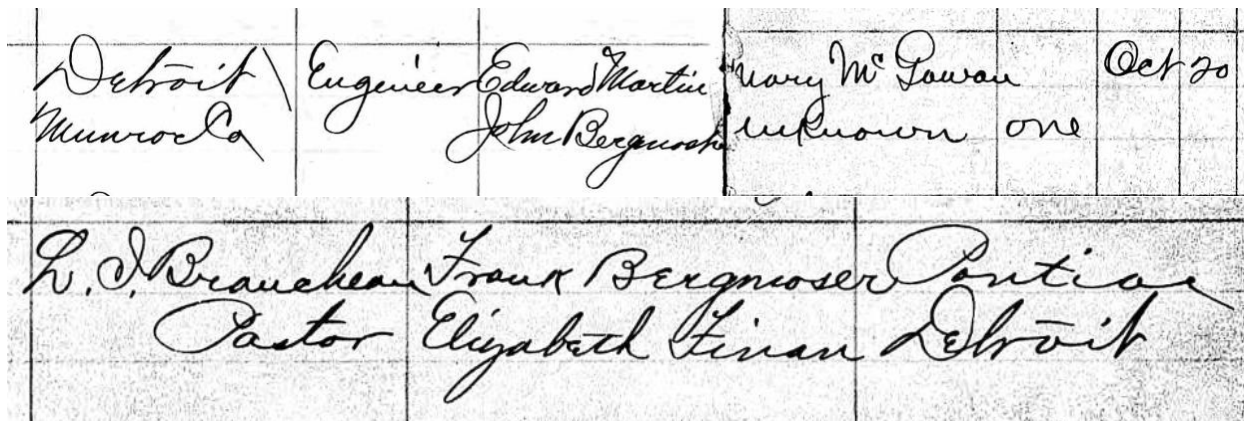 Detroit Engineer Edward Martin Mary McGowan Oct 20
Munroe Co John Bergmosh unknown one
L. I. Brancheau Frank Bergmoser Pontiac
Pastor Elizabeth Finan Detroit